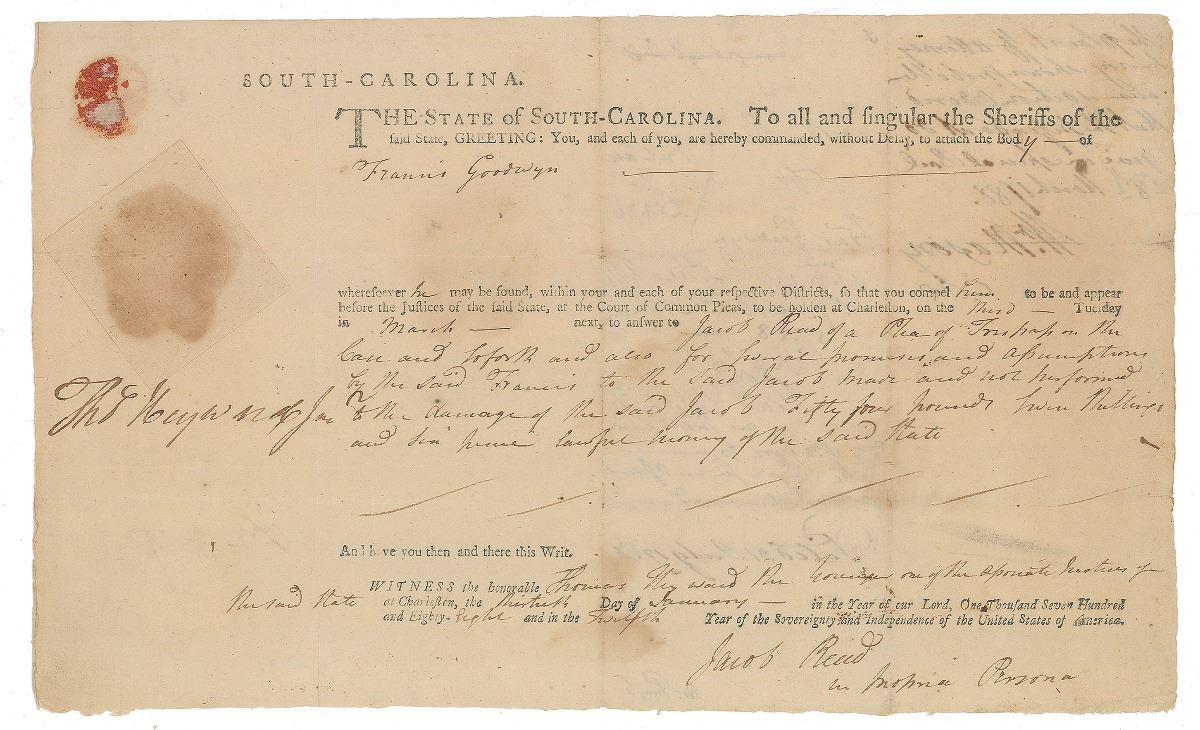 SOUTH-CAROLINA.
THE STATE of SOUTH-CAROLINA. To all and singular the Sheriffs of the
said State, GREETING: You, and each of you, are hereby commanded, without Delay, to attach the Body of
Francis Goodwyn
wheresoever he may be found, within your and each of your respective Districts, so that you compel him to be and appear
before the Justices of the said State, at the Court of Common Pleas, to be holden at Charleston, on the third Tuesday
in March next, to answer to Jacob Read of a Plea of Trespass on the
Case and soforth and also for several promises and assumptions
by the said Francis to the said Jacob made and not performed
Thos Heyward Jun
to the damage of the said Jacob Fifty four pounds Shillings
and six pence lawful money of the said State
And have you then and there this Writ.
WITNESS the honorable Thomas Heyward the Younger one of the Associate Justices of
the said State at Charleston, the Day of January in the Year of our Lord, One Thousand Seven Hundred
and Eighty-Eight and in the Twelfth Year of the Sovereignty and Independence of the United States of America.
Jacob Read
in propria Persona